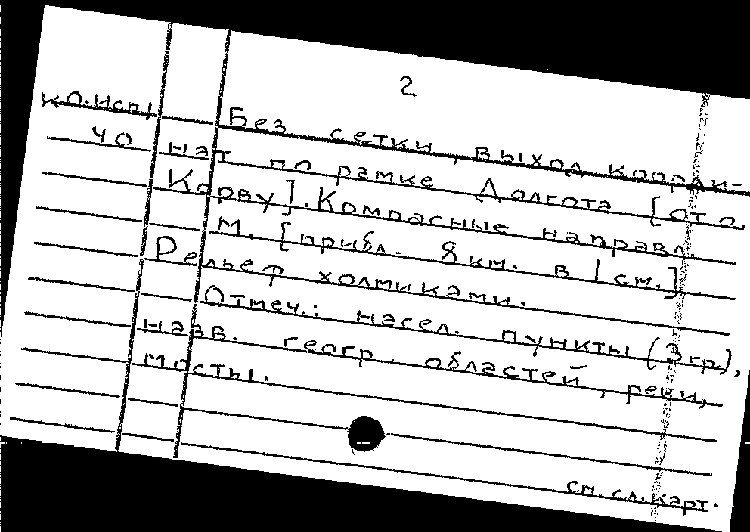 2
к.О.исп.
40
Без сетки, выход коорди-
нат по рамке Долгота [от о.
Корву]. Компасные направл.
М. [прибл. 8 км. в 1 см.]
Рельеф холмиками.
Отмеч.: насел. пункты (3 гр.),
назв. геогр. областей, реки,
мосты.
см. сл. карт.